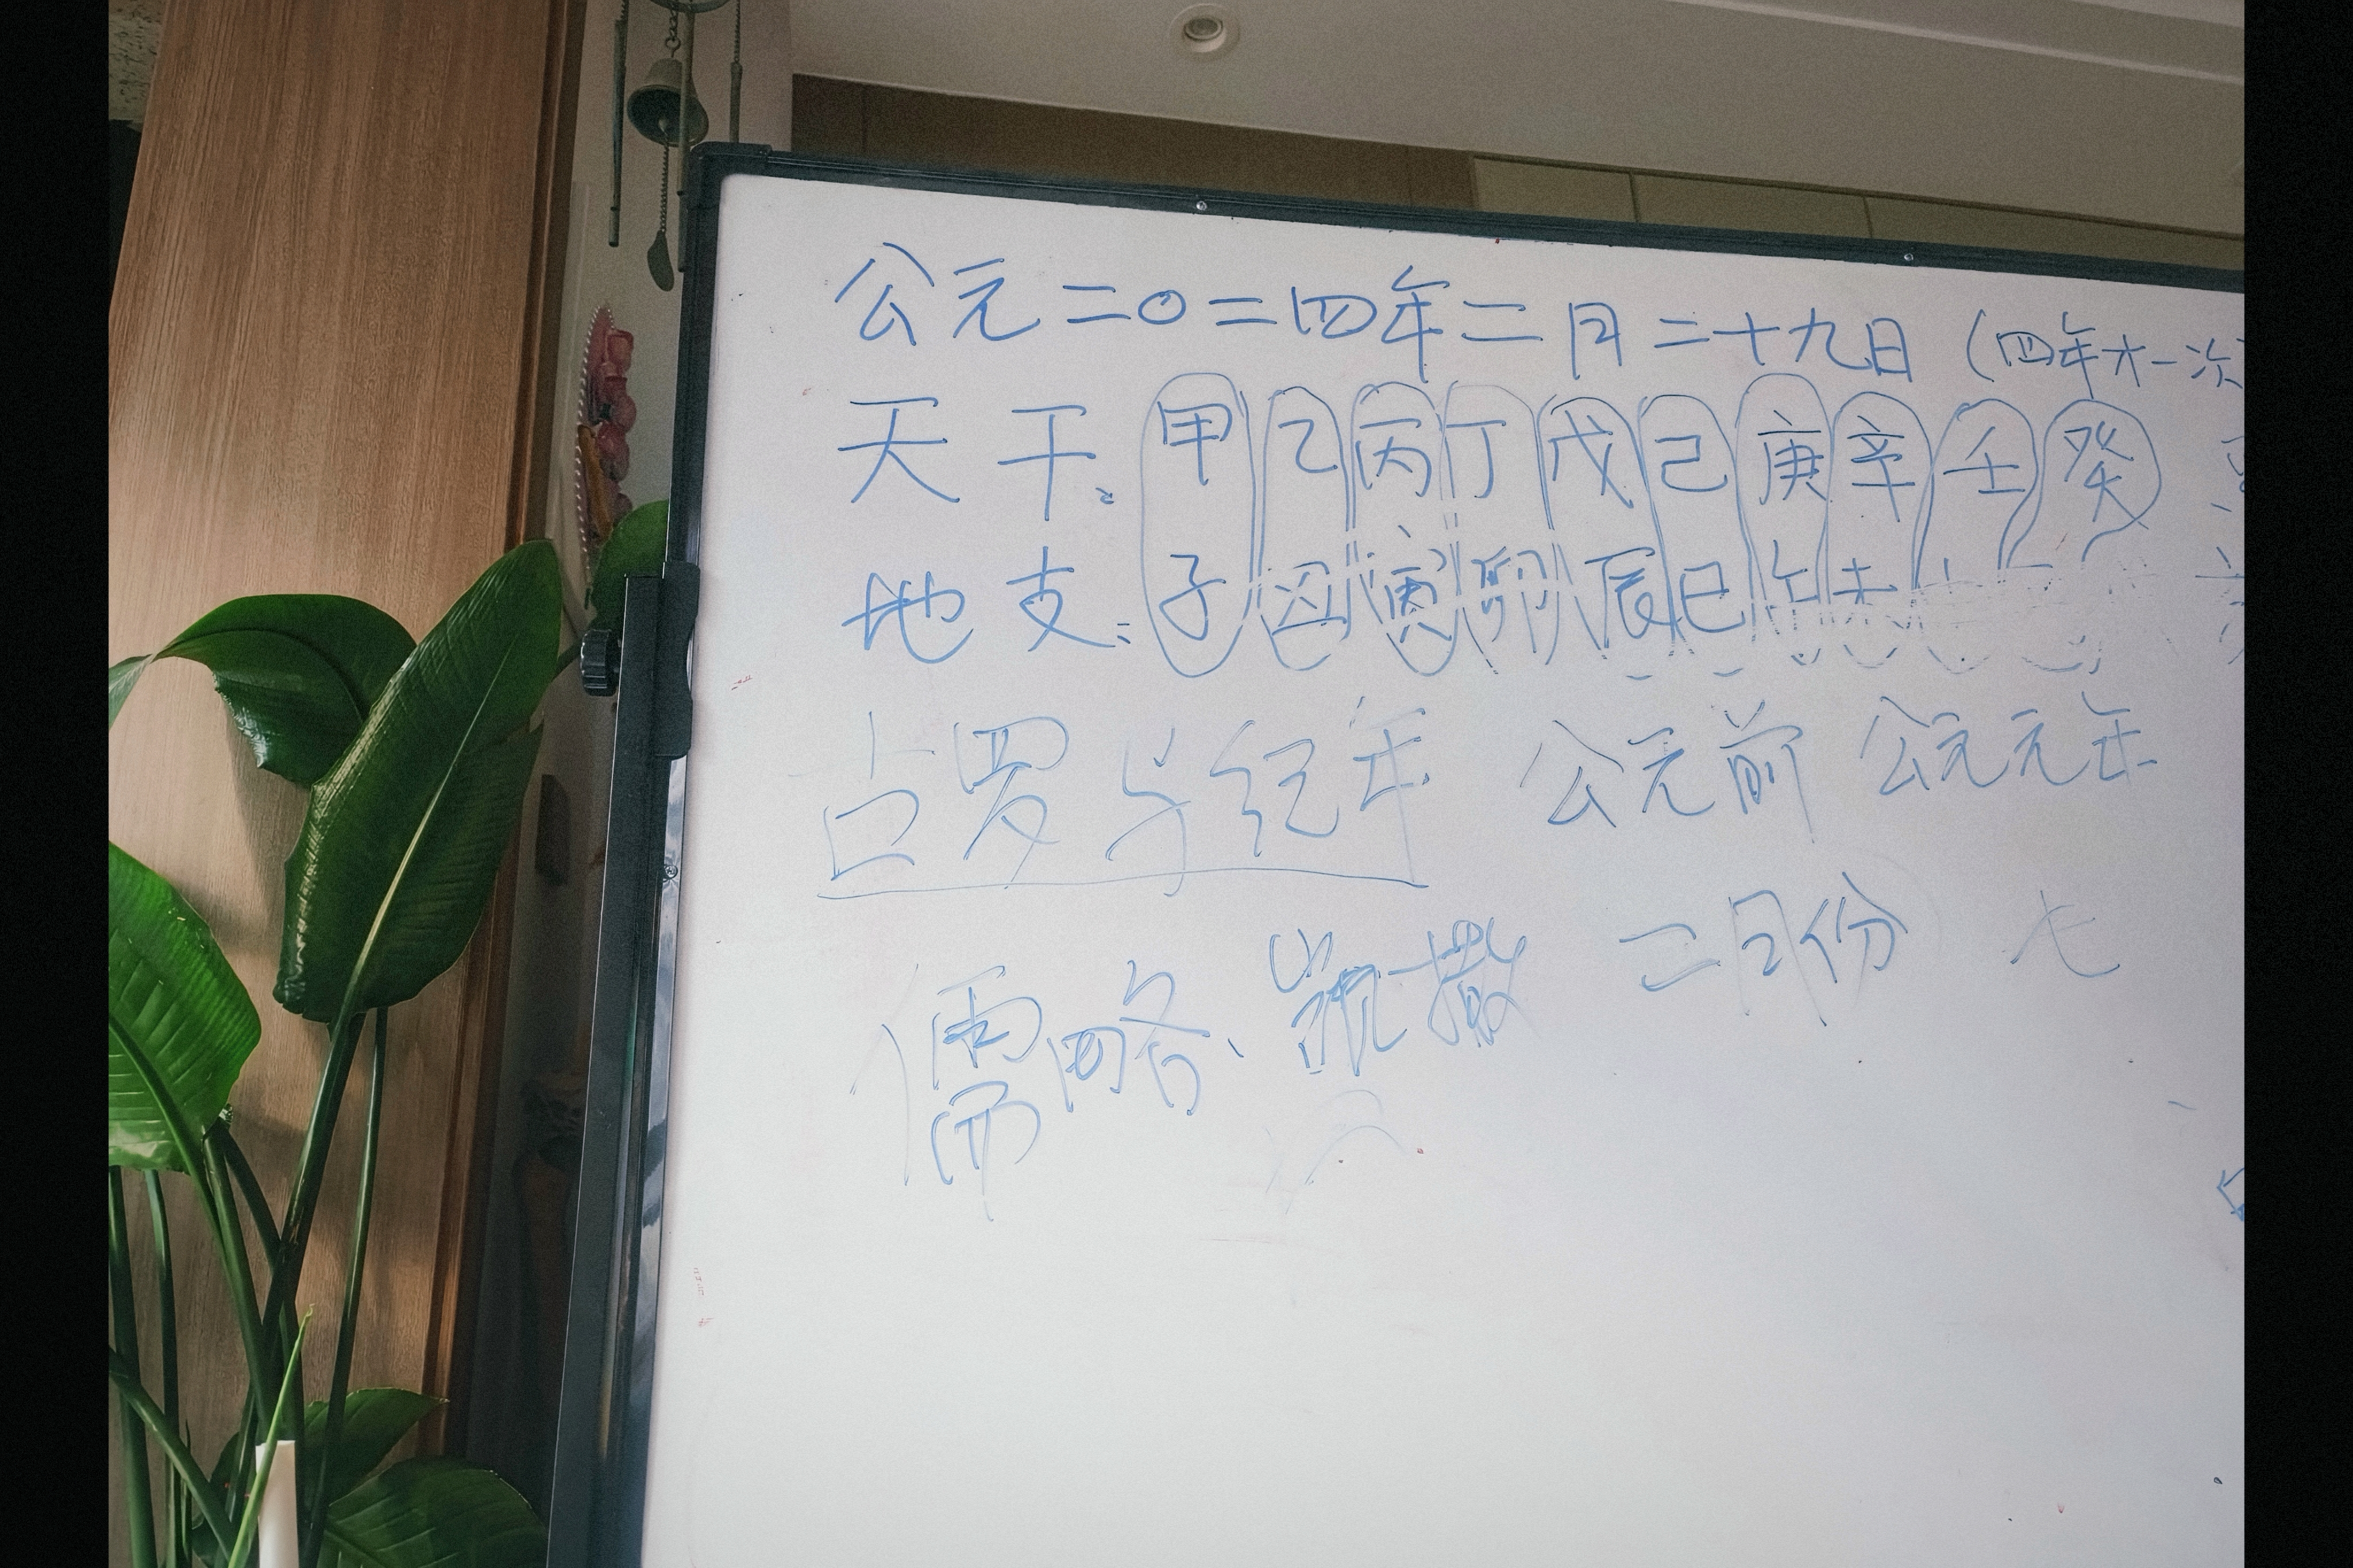 公元二〇二四年二月二十九日（四年才一次
天干：甲乙丙丁戊己庚辛壬癸
地支：子丑寅卯辰巳午未
占罗与纪年 公元前 公元元年
儒略、凯撒 二月份 七